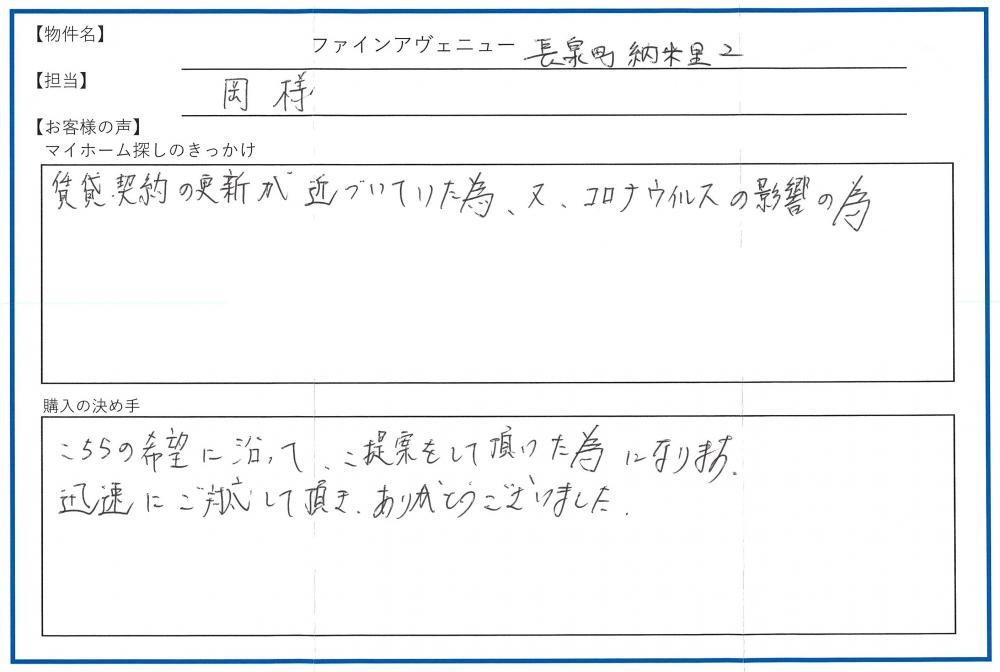 【物件名】
ファインアヴェニュー 長泉町 納米里2
【担当】
岡 様
【お客様の声】
マイホーム探しのきっかけ
賃貸契約の更新が近づいていた為、又、コロナウイルスの影響の為
購入の決め手
こちらの希望に沿って、ご提案をして頂けた為になります。
迅速にご対応して頂き、ありがとうございました。